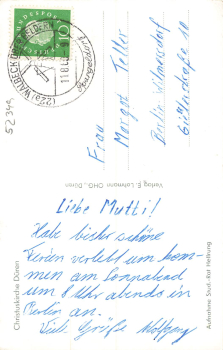 DEUTSCHE BUNDESPOST
10
(22a) WALBECK
52349
Frau
Margot Teller
Berlin Wilmersdorf
Verlag E. Lohmann OHG., Düren
Liebe Mutti!
Habe bisher schöne
Ferien verlebt u. kom-
men am Sonnabend
um 8 Uhr abends in
Berlin an.
Viele Grüße Wolfgang
Christuskirche Düren
Aufnahme Stud.-Rat Hellwig